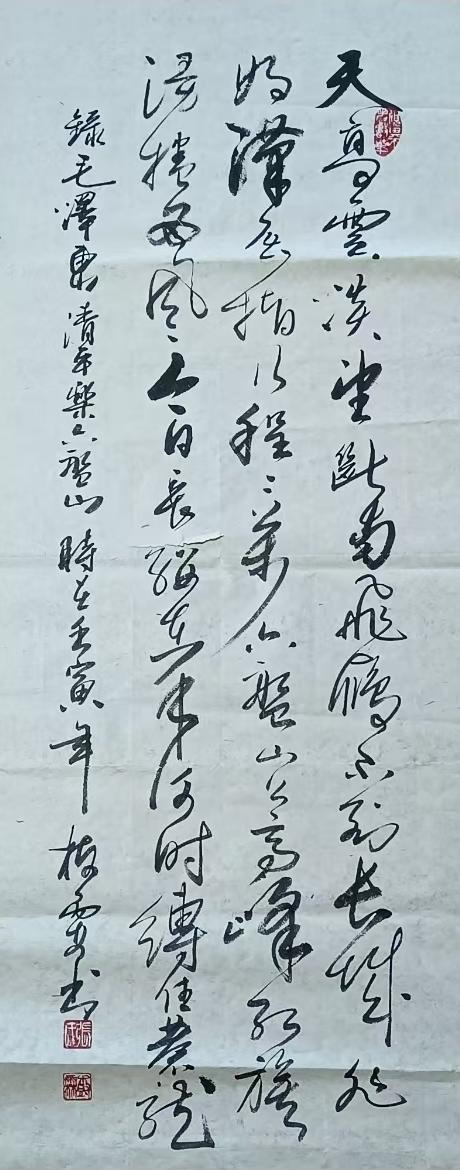 天高雲淡望斷南飛鴈不到长城非
好漢屈指行程二萬六盤山上高峰红旗
漫捲西风今日長纓在手何时縛住蒼龍
錄毛澤東清平樂六盤山時在壬寅年梅书